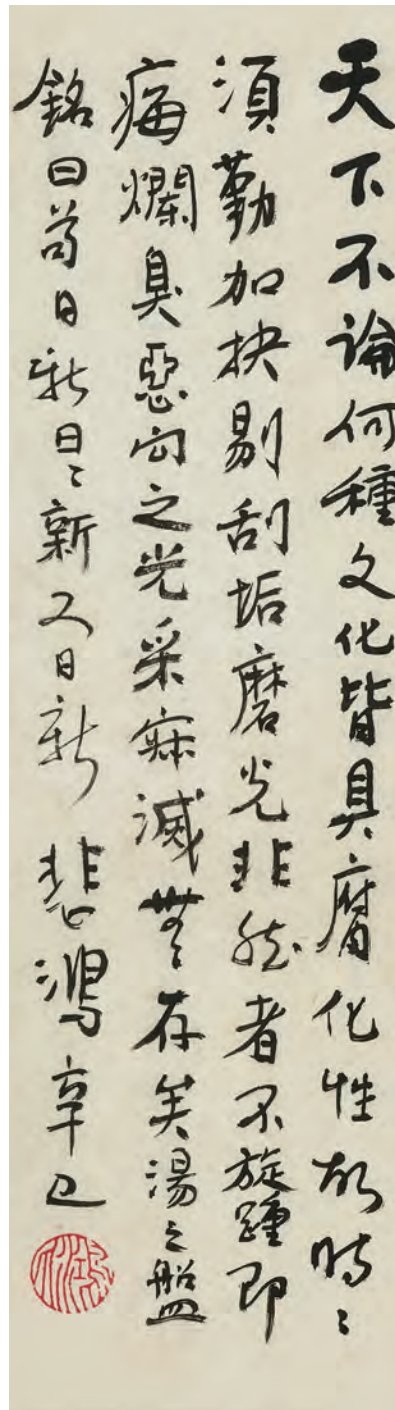 天下不論何種文化皆具腐化性故時〻
須勤加抉剔刮垢磨光非然者不旋踵即
痗爛臭惡向之光采寂滅無〻存矣湯之盤
銘曰苟日新日〻新又日新 悲鴻 辛巳